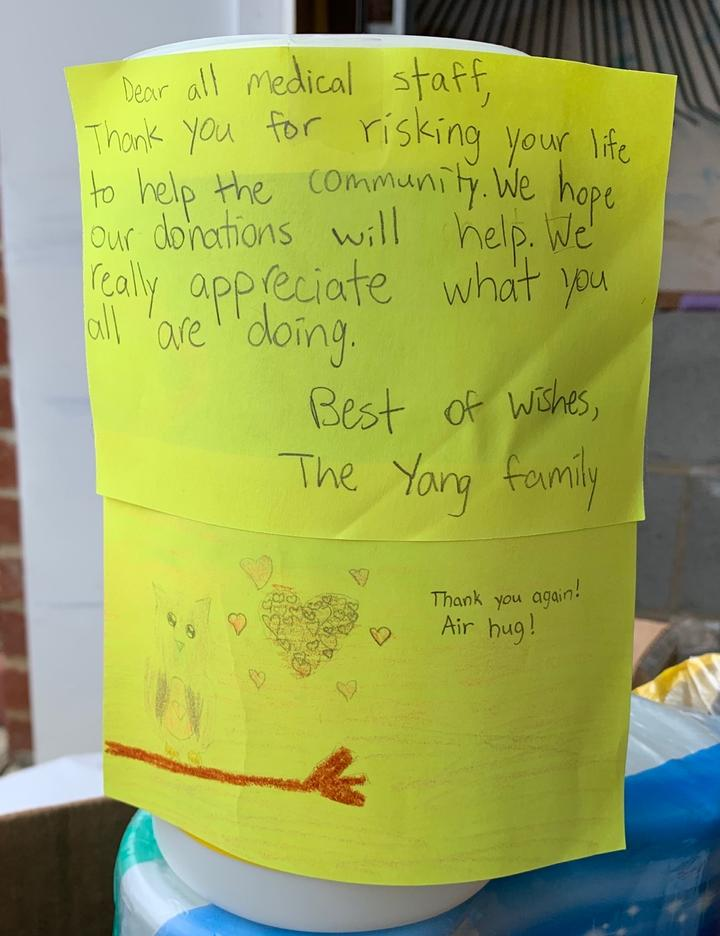 Dear all medical staff,
Thank you for risking your life
to help the community. We hope
our donations will help. We
really appreciate what you
all are doing.
Best of wishes,
The Yang family
Thank you again!
Air hug!